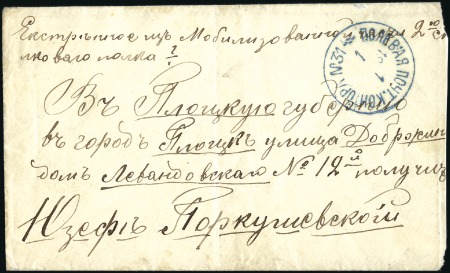 Екстренное изъ Мобилизованной 2го
лковаго полка?
ПОЛЕВАЯ ПОЧТ. КОНТОРА №31
1
Въ Плоцкую губернію
въ городъ Плоцкъ улица Добржин
домъ Левандовскаго № 12го получит
Юзефъ Поркушевскій